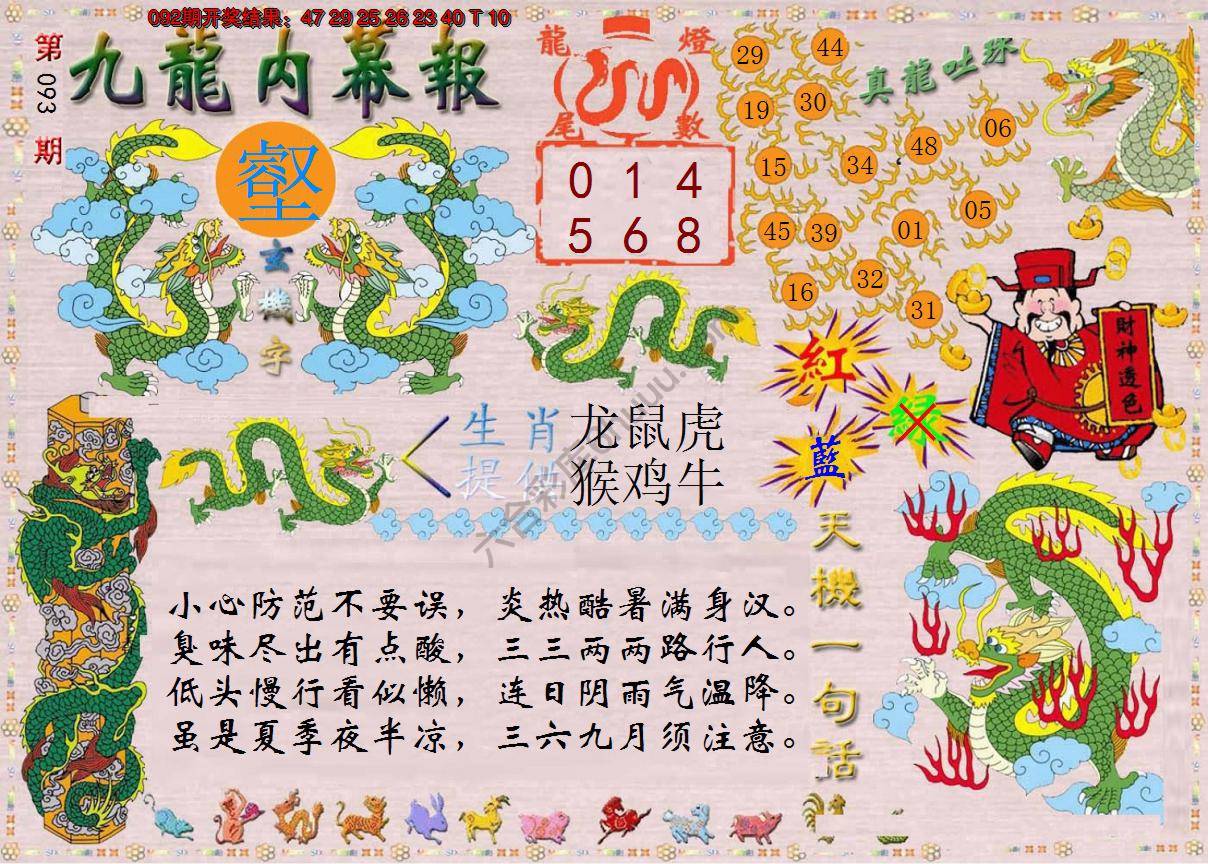 092期开奖结果：47 29 25 26 23 40 T 10
第093期
九龍内幕報
壑
玄機字
龍燈
尾數
0 1 4
5 6 8
真龍吐珠
29 44
19 30
15 34 48 06
45 39 01 05
16 32 31
財神透色
紅
緑
藍
生肖 龙鼠虎
提供 猴鸡牛
天機一句話
小心防范不要误，炎热酷暑满身汉。
臭味尽出有点酸，三三两两路行人。
低头慢行看似懒，连日阴雨气温降。
虽是夏季夜半凉，三六九月须注意。